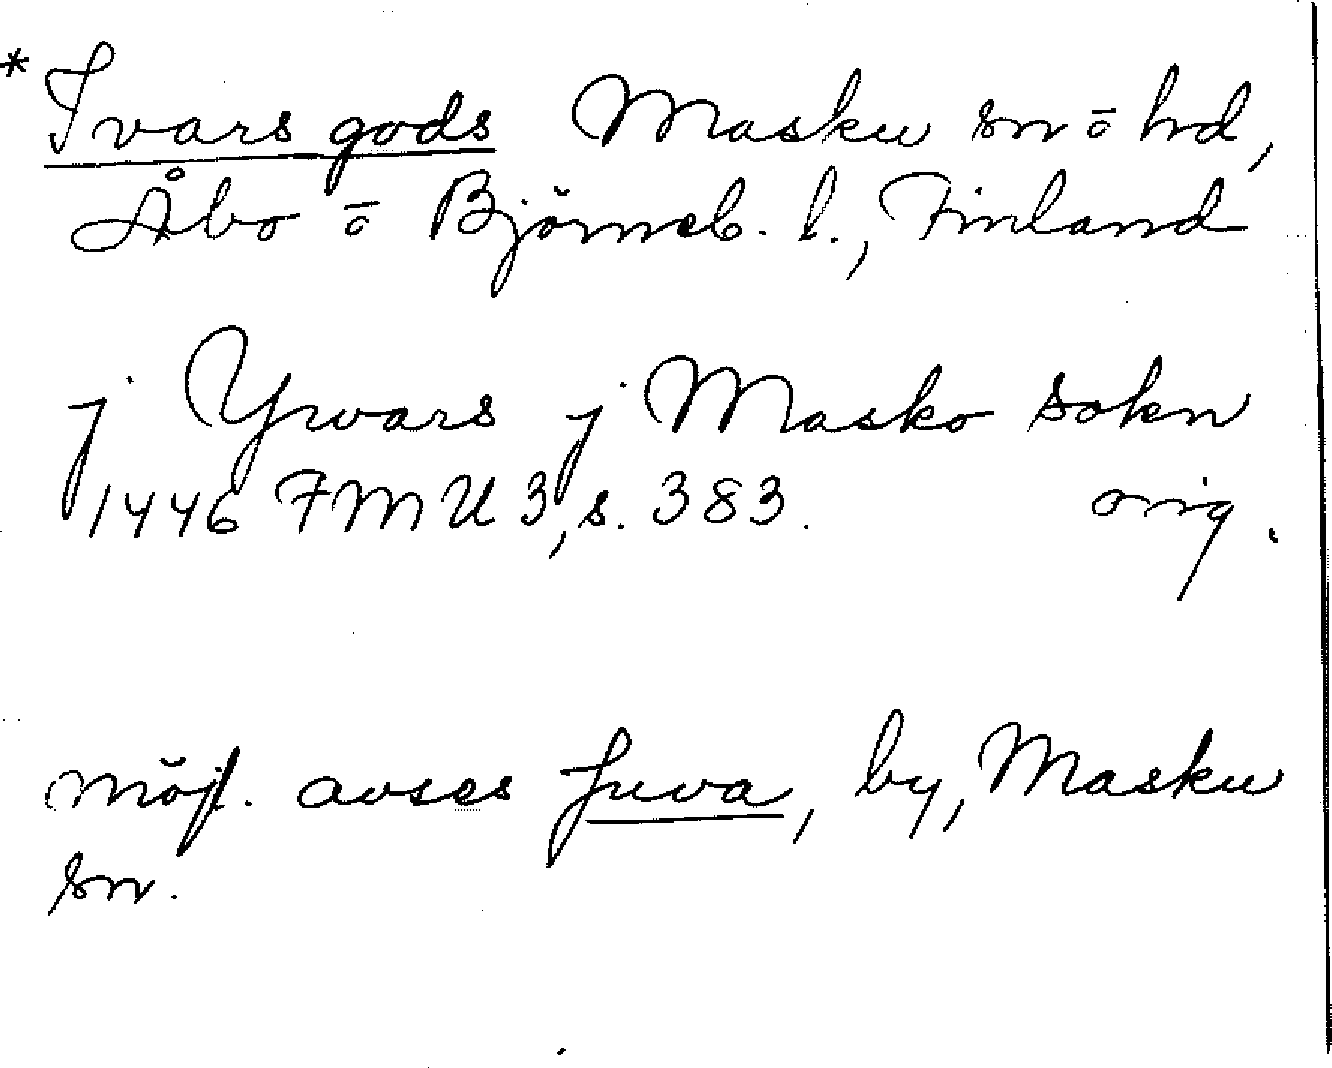 * Ivars gods Masku sn o hd,
Åbo o Björneb. l., Finland
j Ywars j Masko sokn
1446 FMU 3, s. 383. orig.
möjl. avses Juva, by, Masku
sn.